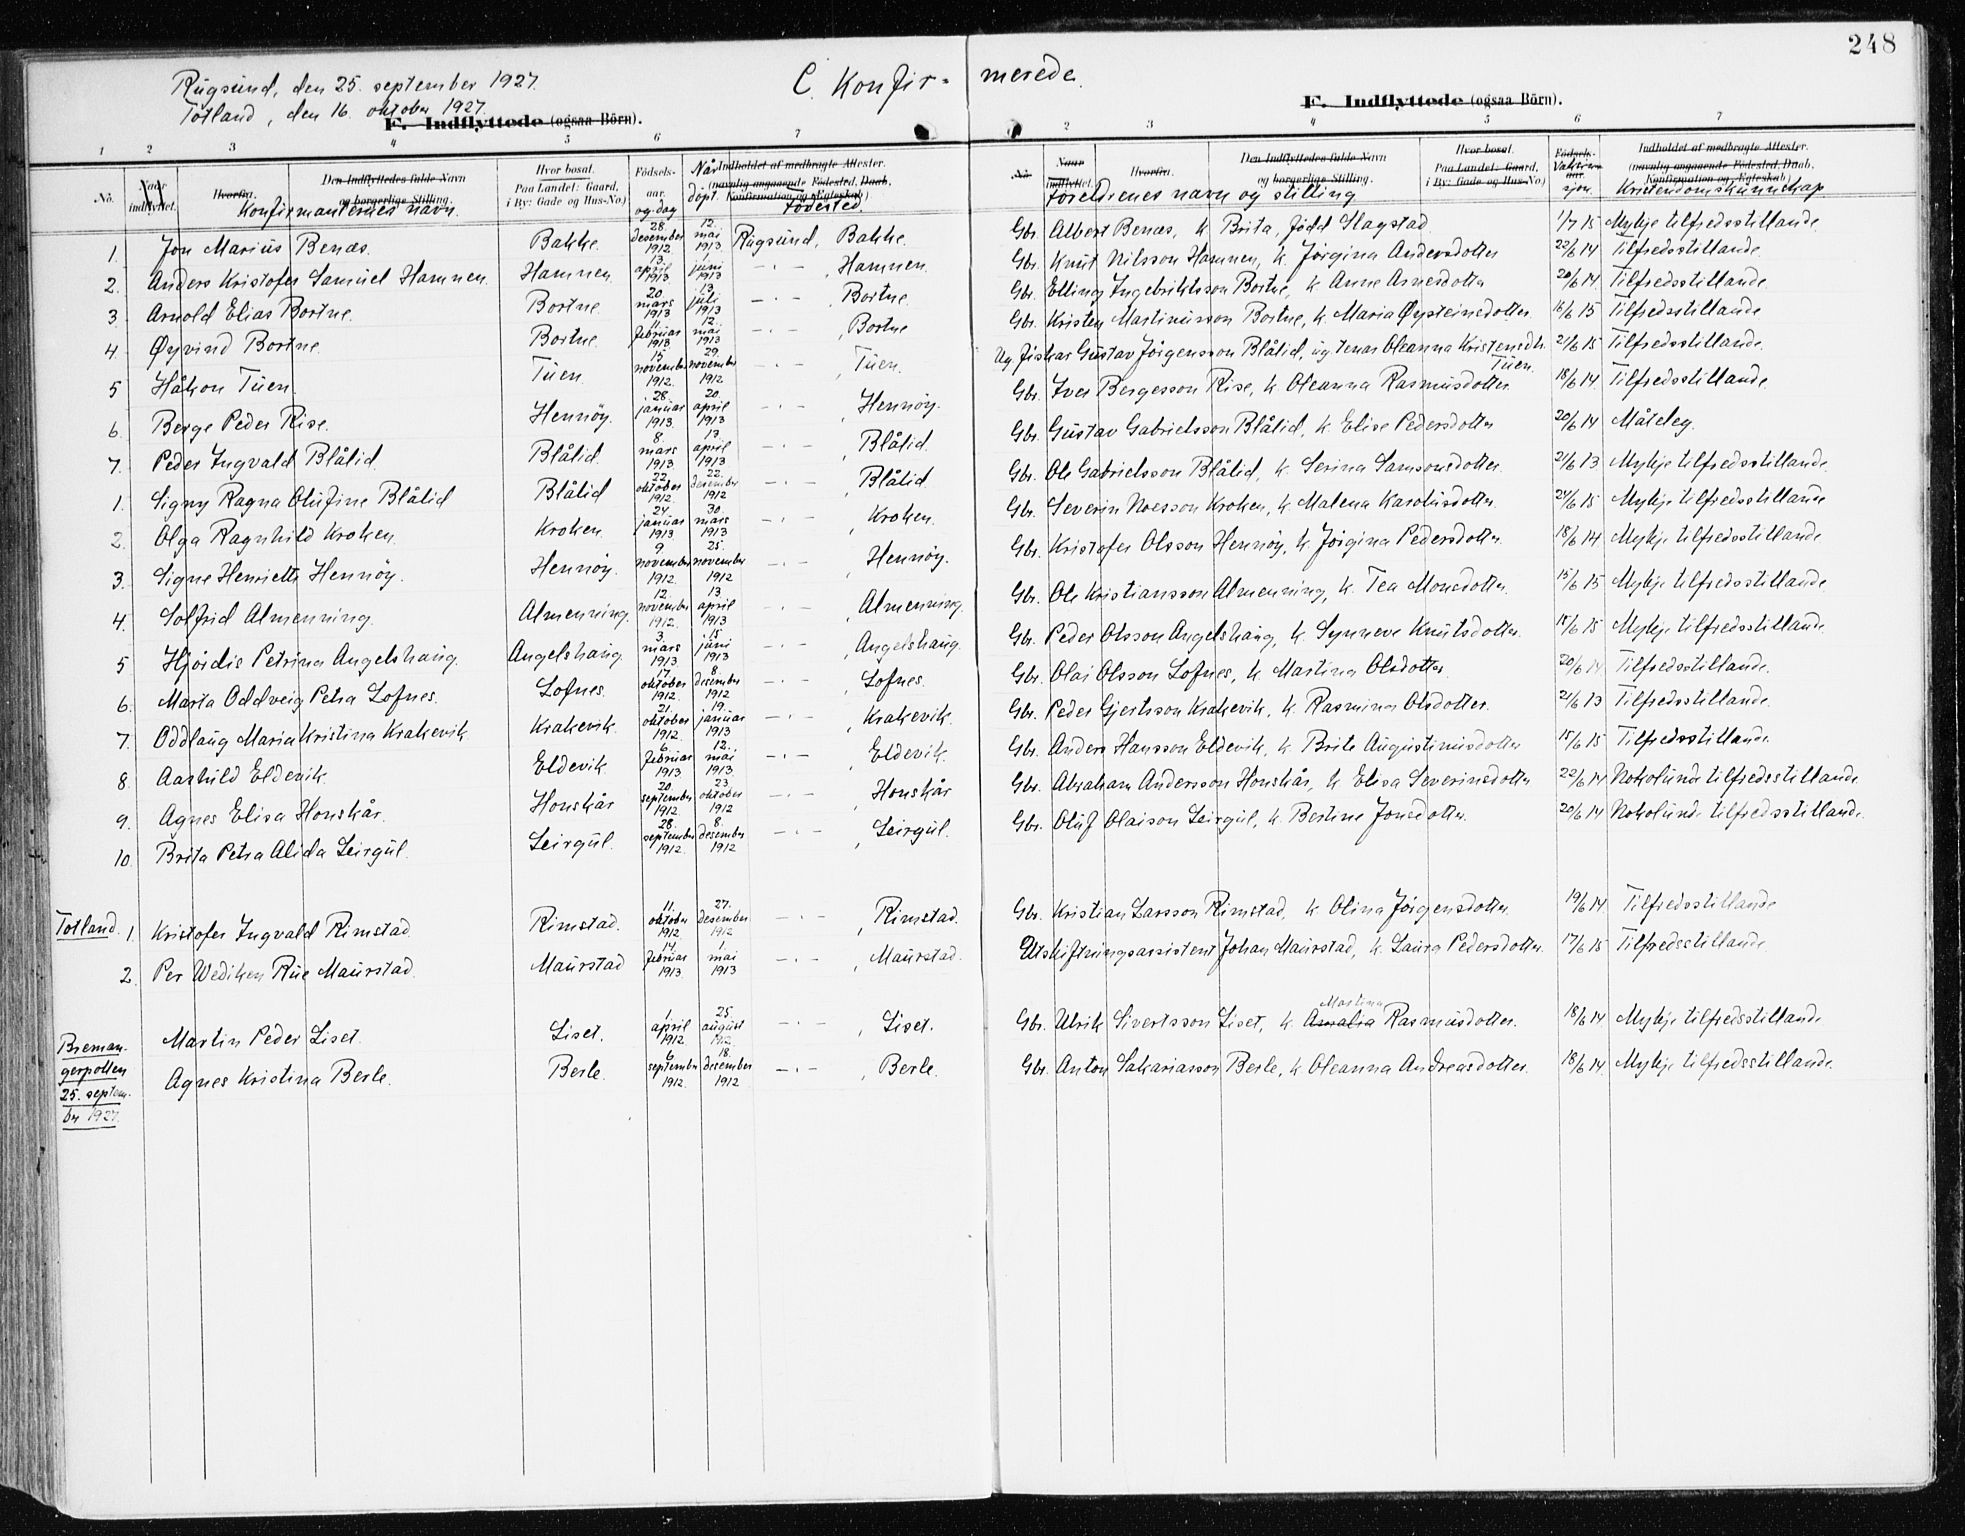 248
Rugsund, den 25. september 1927.
Totland, den 16. oktober 1927.
C. Konfir- merede
F. Indflyttede (ogsaa Börn).
F. Indflyttede (ogsaa Börn).
1 2 3 4 5 6 7
2 3 4 5 6 7
No. Naar indflyttet. Hvorfra. Den Indflyttedes fulde Navn og borgerlige Stilling. Hvor bosat. Paa Landet: Gaard, i By: Gade og Hus-No) Födsels- aar og dag Når döpt. Indholdet af medbragte Attester. (navnlig angaaende Födested, Daab, Konfirmation og Ægteskab)
Konfirmanternes navn. Fødested.
No. Naar indflyttet. Hvorfra. Den Indflyttedes fulde Navn og borgerlige Stilling. Hvor bosat. Paa Landet: Gaard, i By: Gade og Hus-No) Födsels- aar Vaksina- sjon. Indholdet af medbragte Attester. (navnlig angaaende Födested, Daab, Konfirmation og Ægteskab)
Foreldrenes navn og stilling Kristendomskunnskap
1. Jon Marius Benæs. Bakke. 28. desember 1912 12. mai 1913 Rugsund, Bakke. Gbr. Albert Benæs, k. Brita, fødd Hagstad 1/7 15 Mykje tilfredsstillande.
2. Anders Kristofer Samuel Hamnen. Hamnen. 13. april 1913 1. juni 1913 -"- , Hamnen. Gbr. Knut Nilsson Hamnen, k. Jørgina Andersdotter 22/6 14 Tilfredsstillande.
3. Arnold Elias Bortne. Bortne. 20. mars 1913 13. juli 1913 -"- , Bortne. Gbr. Elling Ingebriktsson Bortne, k. Anne Arnesdotter 20/6 14. Tilfredsstillande.
4. Øyvind Bortne. Bortne. 11. februar 1913 12. mai 1913 -"- , Bortne Gbr. Kristen Martinusson Bortne, k. Maria Øysteinsdotter. 16/6 15 Tilfredsstillande
5 Håkon Tuen. Tuen. 15 november 1912. 29. november 1912 -"- , Tuen. Ug. fiskar Gustav Jørgensson Blålid, ug. tenar Oleanna Kristensdtr. Tuen. 21/6 15 Tilfredsstillande.
6. Berge Peder Rise. Hennøy. 28. januar 1913. 20. april 1913 -"- , Hennøy. Gbr. Iver Bergesson Rise, k. Oleanna Rasmusdotter. 18/6 14. Tilfredsstillande.
7. Peder Ingvald Blålid. Blålid. 8. mars 1913 13. april 1913 -"- , Blålid. Gbr. Gustav Gabrielsson Blålid, k. Elise Pedersdotter 20/6 14 Måteleg.
1. Signy Ragna Olufine Blålid Blålid 22. oktober 1912. 22. desember 1912 -"- , Blålid. Gbr. Ole Gabrielsson Blålid, k. Serina Samsonsdotter. 21/6 13 Mykje tilfredsstillande.
2. Olga Ragnhild Kroken. Kroken. 24. januar 1913 30. mars 1913 -"- , Kroken. Gbr. Severin Noesson Kroken, k. Malena Karolusdotter. 24/6 15 Mykje tilfredsstillande
3. Signe Henriette Hennøy. Hennøy. 9 november 1912. 25. november 1912 -"- , Hennøy. Gbr. Kristofer Olsson Hennøy, k. Jørgina Pedersdotter. 18/6 14 Mykje tilfredsstillande
4. Solfrid Almenning. Almenning. 12. november 1912. 13 april 1913 -"- , Almenning. Gbr. Ole Kristiansson Almenning, k. Tea Monsdotter. 15/6 15 Mykje tilfredsstillande.
5 Hjørdis Petrina Angelshaug. Angelshaug. 3. mars 1913. 15. juni 1913 -"- , Angelshaug. Gbr. Peder Olsson Angelshaug, k. Synneve Knutsdotter. 15/6 15 Mykje tilfredsstillande.
6. Marta Oddveig Petra Lofnes. Lofnes. 17. oktober 1912 8. desember 1912 -"- , Lofnes. Gbr. Olai Olsson Lofnes, k. Martina Olsdotter. 20/6 14 Tilfredsstillande.
7. Oddlaug Maria Kristina Krakevik Krakevik. 21. oktober 1912. 19. januar 1913 -"- , Krakevik. Gbr. Peder Gjertsson Krakevik, k. Rasmina Olsdotter. 21/6 13 Tilfredsstillande.
8. Aashild Eldevik. Eldevik. 6. februar 1913 12. mai 1913. -"- , Eldevik. Gbr. Anders Hansson Eldevik, k. Brite Augustinusdotter 15/6 15 Tilfredsstillande.
9. Agnes Elisa Honskår. Honskår 20. september 1912. 23. oktober 1912 -"- , Honskår Gbr. Abraham Andersson Honskår, k. Elisa Severinsdotter 22/6 14 Nokolunde tilfredsstillande.
10. Brita Petra Alida Leirgul. Leirgul. 28. september 1912. 8. desember 1912 -"- , Leirgul. Gbr. Oluf Olaison Leirgul, k. Bertine Jonsdotter. 20/6 14 Nokolunde tilfredsstillande.
Totland. 1. Kristofer Ingvald Rimstad. Rimstad. 11. oktober 1912 27. desember 1912 -"- , Rimstad. Gbr. Kristian Larsson Rimstad, k. Olina Jørgensdotter. 19/6 14 Tilfredsstillande
2. Per Wediken Rue Maurstad. Maurstad 14. februar 1913. 1. mai 1913 -"- , Maurstad. Utskiftningsassistent Johan Maurstad, k. Laura Pedersdotter. 17/6 15 Tilfredsstillande
Breman- gerpollen 25. septem- ber 1927. Martin Peder Liset. Liset. 1. april 1912 25. august 1912 -"- , Liset. Gbr. Ulrik Sivertsson Liset, k. Amalia Martina Rasmusdotter. 18/6 14. Mykje tilfredsstillande
Agnes Kristina Berle. Berle. 6. september 1912. 18. desember 1912 -"- , Berle. Gbr. Anton Sakariasson Berle, k. Oleanna Andreasdotter. 18/6 14. Mykje tilfredsstillande.